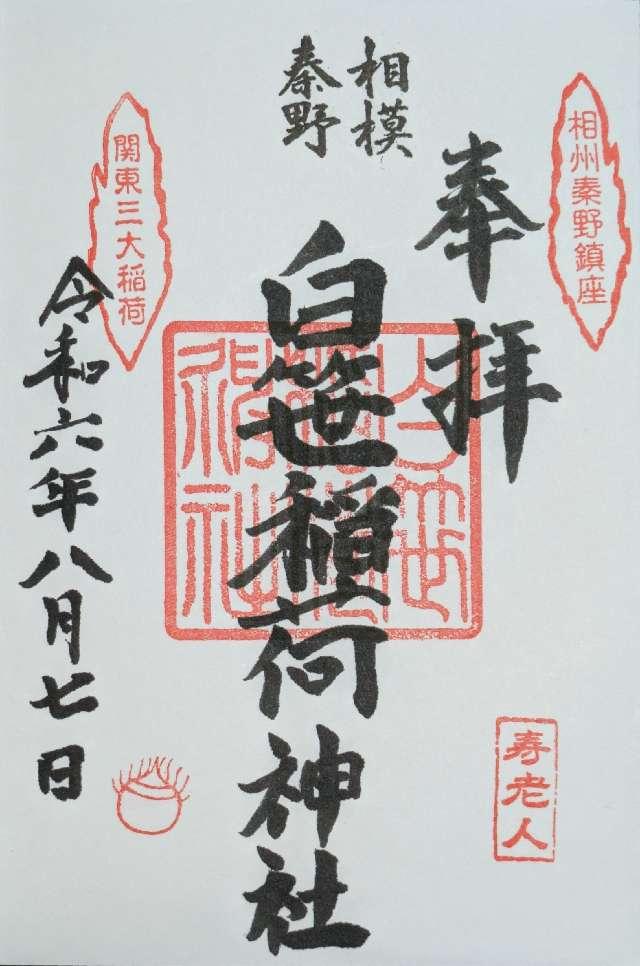 相州秦野鎮座
奉拝
相模
秦野
白笹稲荷神社
白笹稲荷神社
関東三大稲荷
令和六年八月七日
寿老人